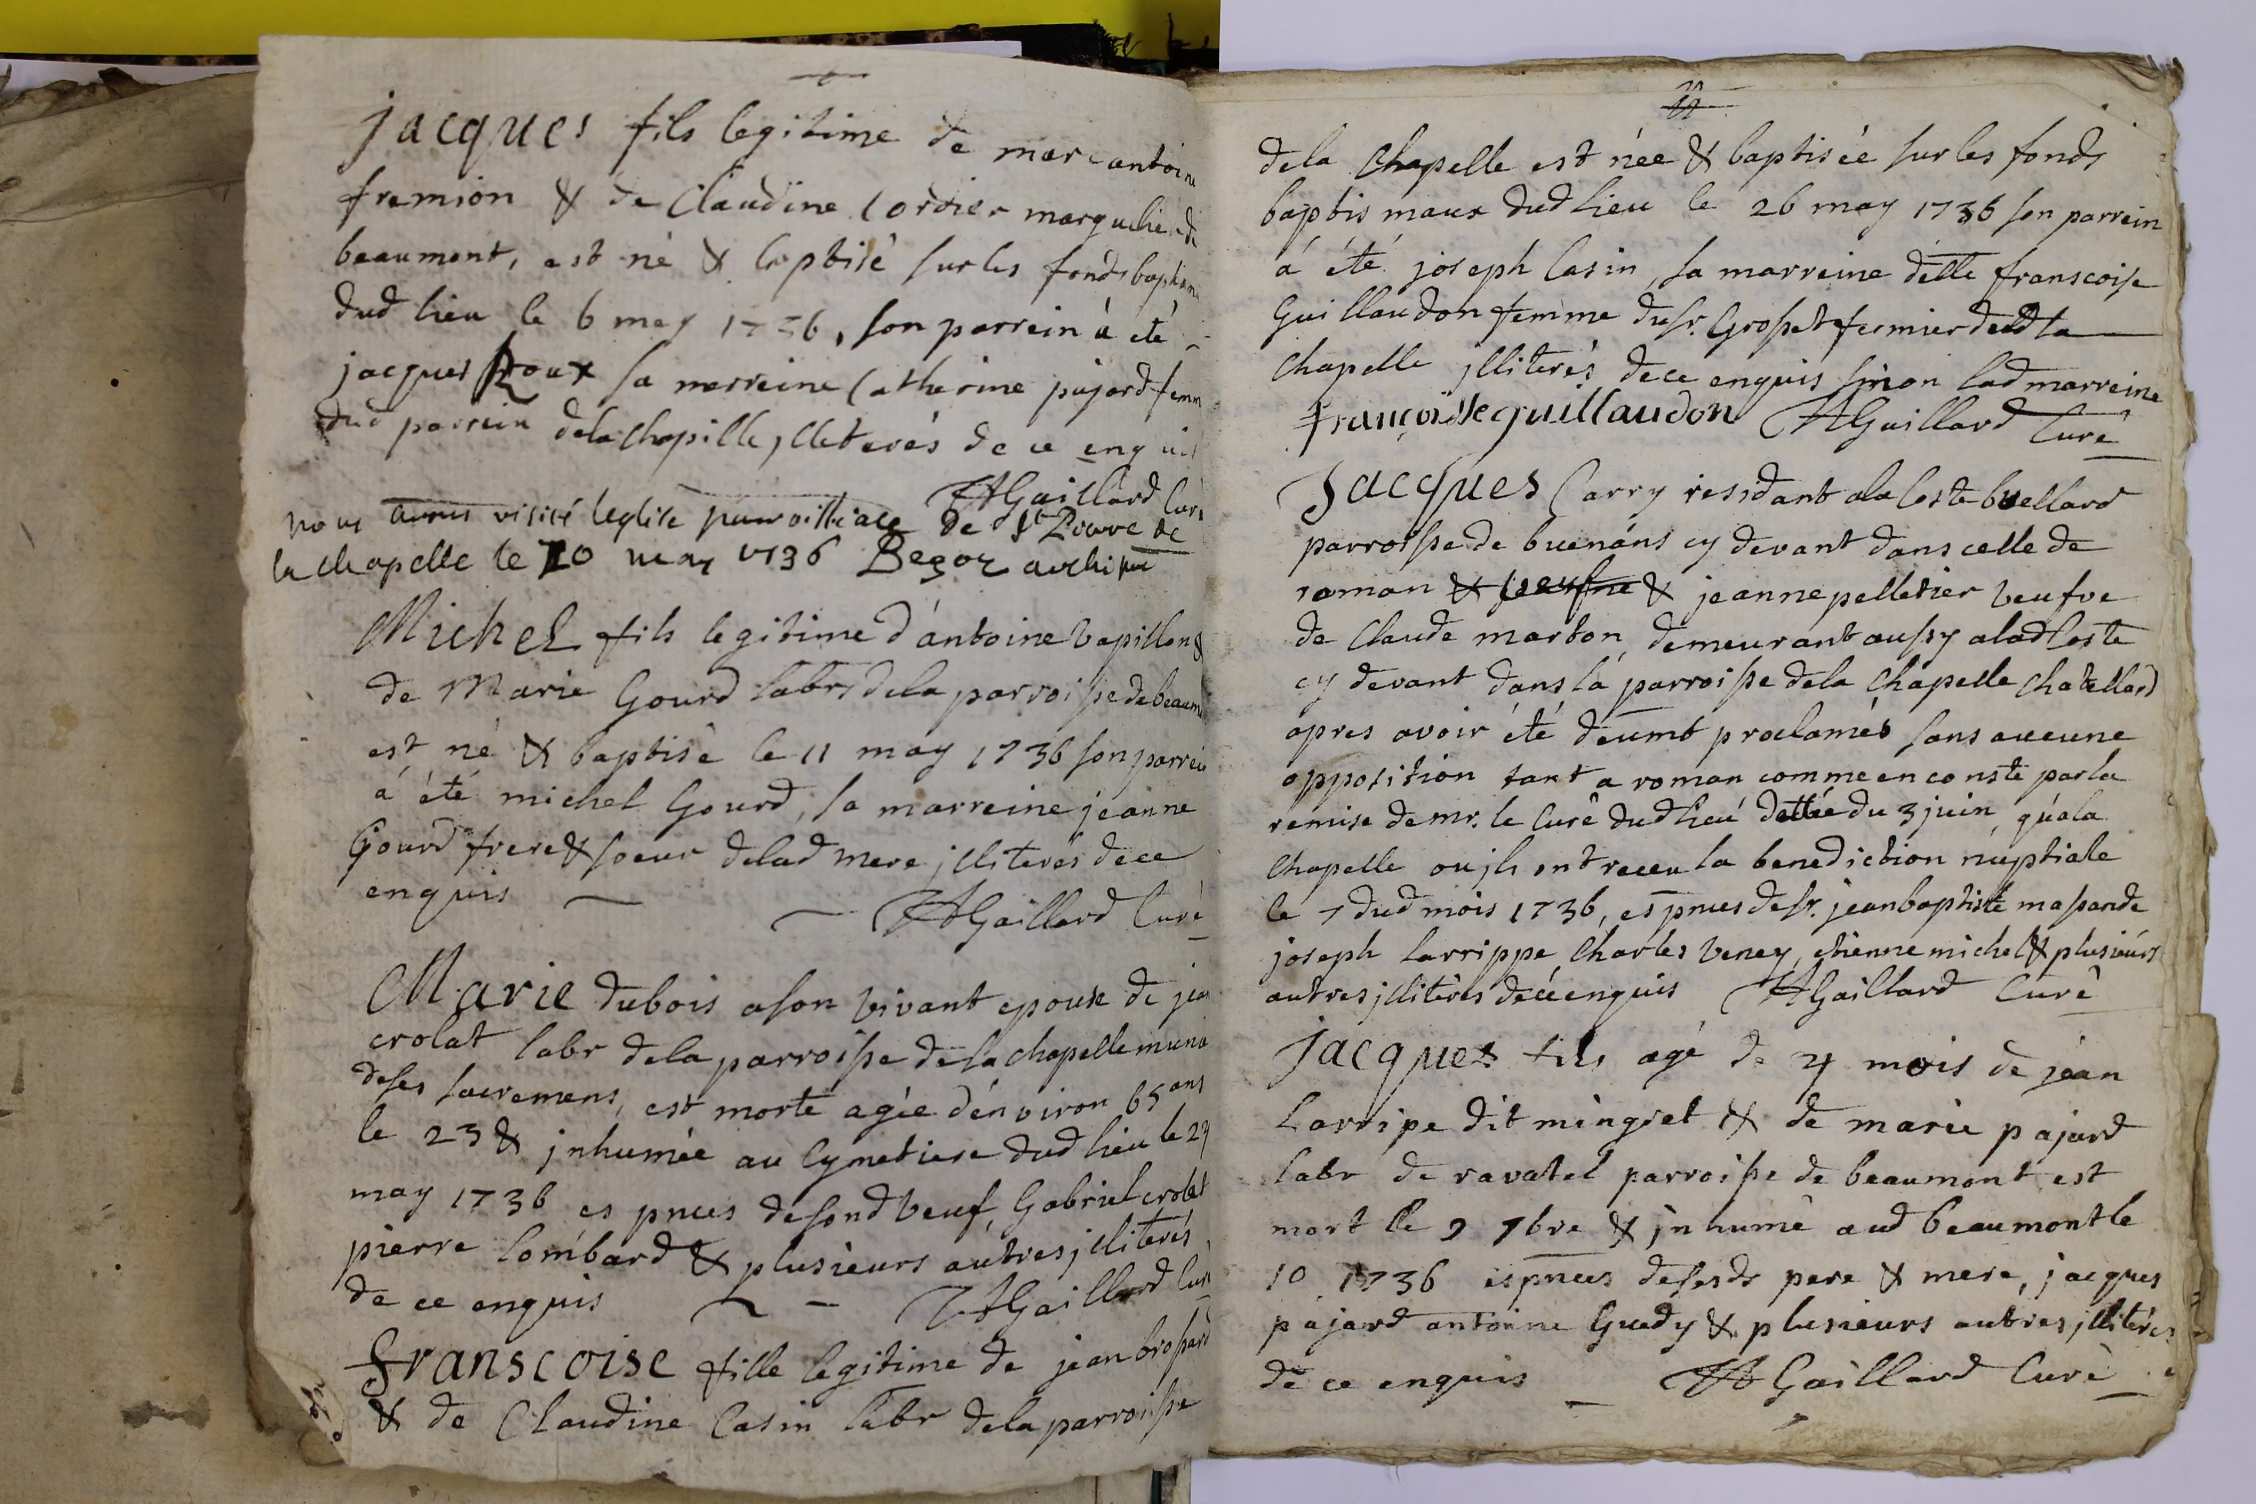 jacques fils legitime de marcantoine
fremion & de Claudine Cordier marguelier de
beaumont, est né & baptisé sur les fonds baptism
dud lieu le 6 may 1736, son parrein à été
jacques Roux sa marreine Catherine pajard femm
dud parrein dela Chapelle jlleterés de ce enquis
JAGaillard Curé
nous avons visité leglise parroissiale de St Pierre de
la chapelle le 10 may 1736 Begoz archipre
Michel fils legitime d'antoine Vapillon &
de Marie Gourd labrs dela parroisse de beaum
est né & baptisé le 11 may 1736 son parrein
à été michel Gourd, sa marreine jeanne
Gourd frere & soeur delad mere jlliterés dece
enquis JAGaillard Curé
Marie dubois a son vivant epouse de jean
crolat labr dela parroisse dela chapelle munie
deses sacremens, est morte agée d'environ 65 ans
le 23 & jnhumée au Cymetiere dud lieu le 24
may 1736 es pnces desond veuf, Gabriel crolat
pierre Lombard & plusieurs autres jlliterés
de ce enquis JAGaillard Curé
franscoise fille legitime de jean brossard
& de Claudine Casin labr dela parroisse
dela Chapelle est née & baptisée sur les fonds
baptismaux dud lieu le 26 may 1736 son parrein
à été joseph Casin, sa marreine delle franscoise
Guillaudon femme du sr. Grosset fermier delad la
Chapelle jlliterés dece enquis sinon lad marreine
françoisse guillaudon JAGaillard Curé
Jacques Carry residant ala Coste buellard
parroisse de buenans cy devant dans celle de
roman & & jeanne pelletier veufve
de Claude marton, demeurant aussy alad Coste
cy devant dans la parroisse dela Chapelle chatellard
apres avoir été deumt proclamés sans aucune
opposition tant a roman comme en conste par la
remise de mr. le Curé dud lieu dattée du 3 juin, qu'a la
Chapelle ou jls ont receu la benediction nuptiale
le 7 dud mois 1736, es pnces de sr. jean baptiste massande
joseph Larrippe, Charles Veney, etienne michel & plusieurs
autres jlliterés dece enquis JAGaillard Curé
Jacques fils agé de 4 mois de jean
Larripe dit mingret & de marie pajard
labr de ravatel parroisse de beaumont est
mort le 9 7bre & jnhumé aud beaumont le
10 1736 es pnces desesds pere & mere, jacques
pajard antoine Guedy & plusieurs autres jlliterés
de ce enquis JAGaillard Curé